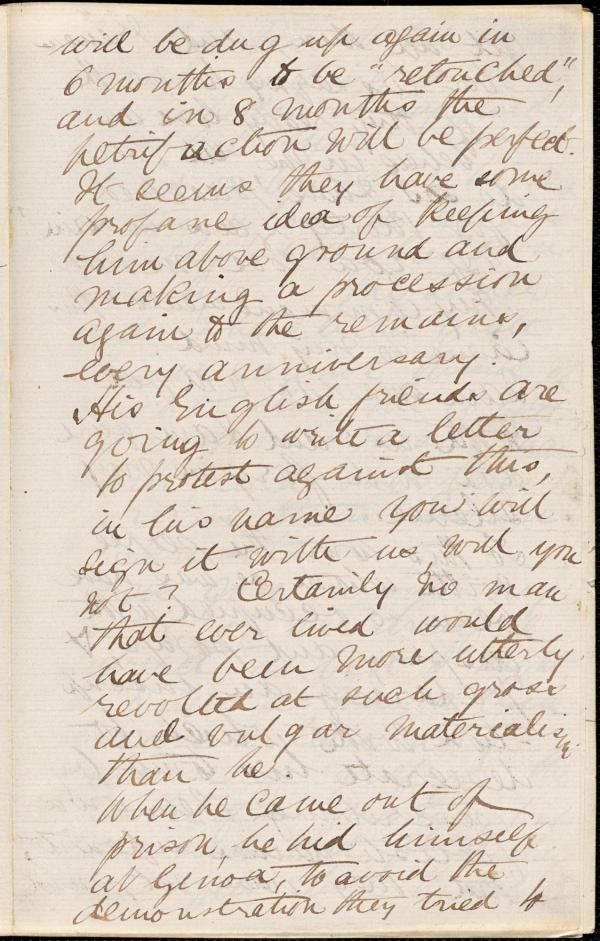 will be dug up again in
6 months to be "retouched",
and in 8 months the
petrifaction will be perfect.
It seems they have some
profane idea of keeping
him above ground and
making a procession
again to the remains,
every anniversary.
His English friends are
going to write a letter
to protest against this,
in his name you will
sign it with us, will you
not? Certainly no man
that ever lived would
have been more utterly
revolted at such gross
and vulgar materialism
than he.
When he came out of
prison, he hid himself
at Genoa, to avoid the
demonstration they tried to